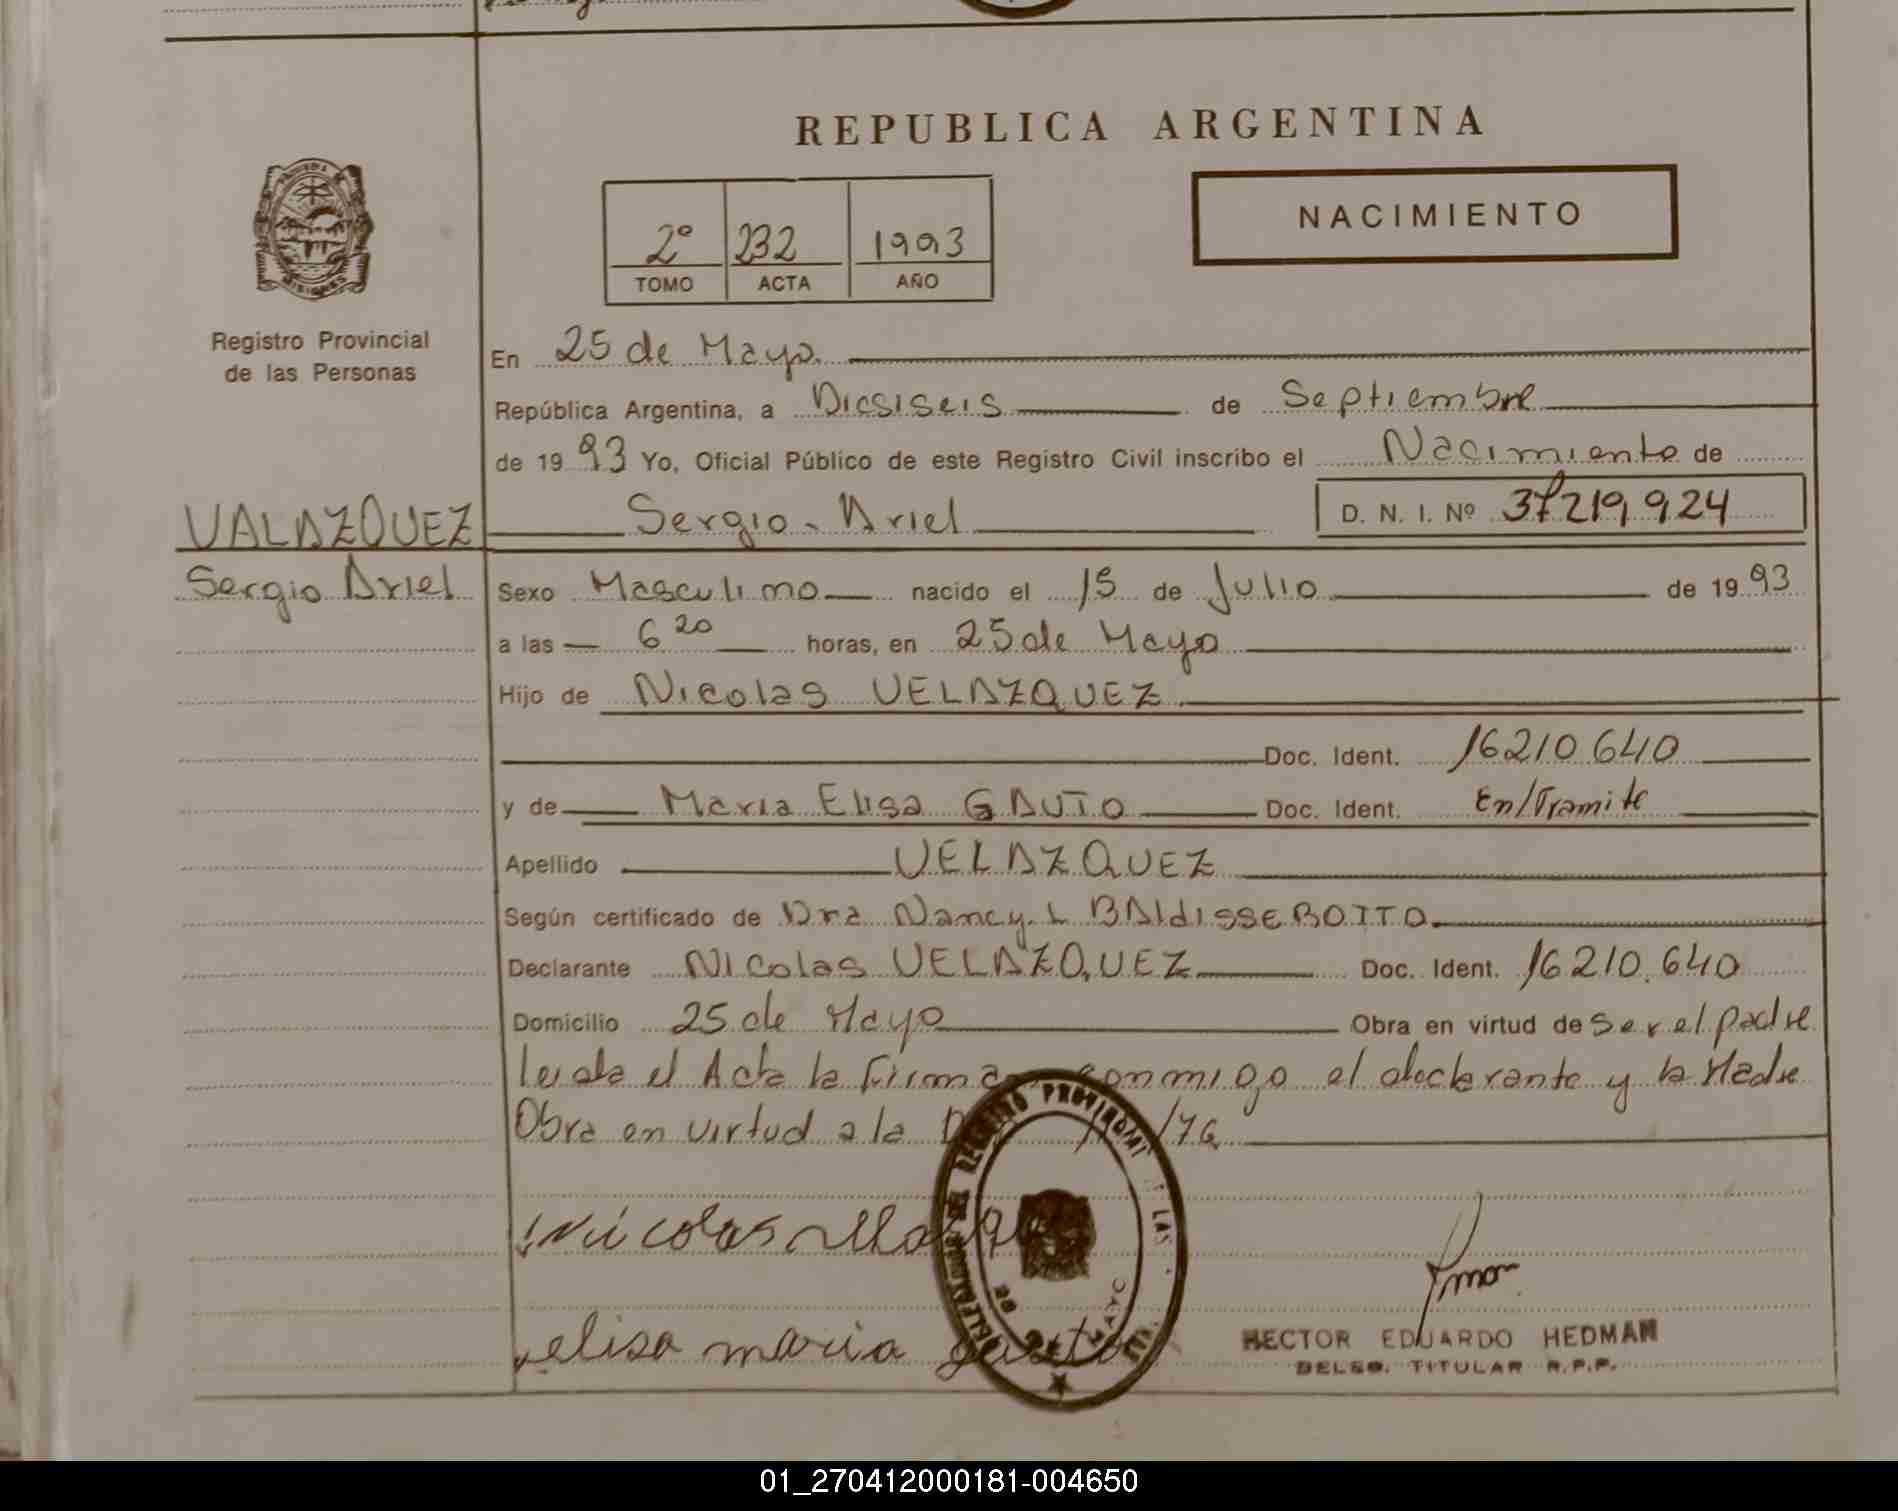 REPUBLICA ARGENTINA
NACIMIENTO
2º 232 1993
TOMO ACTA AÑO
Registro Provincial
de las Personas
En 25 de Mayo
República Argentina, a Diesiseis de Septiembre
de 1993 Yo, Oficial Público de este Registro Civil inscribo el Nacimiento de
VALAZQUEZ Sergio - Ariel D. N. I. Nº 37219924
Sergio Ariel
Sexo Masculino nacido el 15 de Julio de 1993
a las 6 20 horas, en 25 de Mayo
Hijo de Nicolas VELAZQUEZ
Doc. Ident. 16210640
y de Maria Elisa GAUTO Doc. Ident. En/Tramite
Apellido VELAZQUEZ
Según certificado de Dra Nancy L
Declarante Nicolas VELAZQUEZ Doc. Ident. 16210.640
Domicilio 25 de Mayo Obra en virtud de ser el padre
leida el Acta la Firman conmigo el declarante y la Madre
Obra en virtud a la /76
Nicolas
elisa maria gauto
HECTOR EDUARDO HEDMAN
DELEG. TITULAR R.P.P.
01_270412000181-004650